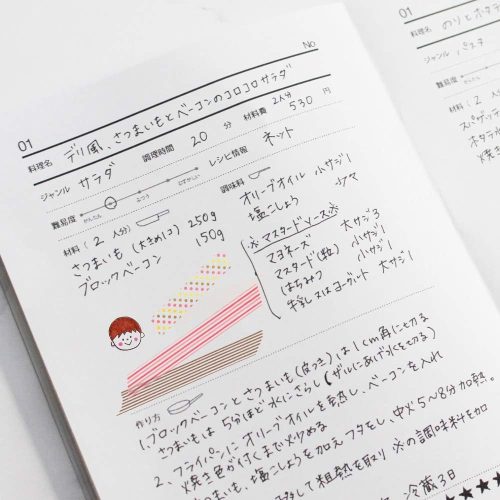 No.
01
料理名 デリ風、さつまいもとベーコンのコロコロサラダ
ジャンル サラダ 調理時間 20 分 材料費 2人分 530 円
難易度 かんたん ふつう むずかしい レシピ情報 ネット
材料 ( 2 人分)
さつまいも (大きめ1コ) 250g
ブロックベーコン 150g
調味料
オリーブオイル 小サジ1
塩こしょう 少々
※マスタードソース※
マヨネーズ 大サジ3
マスタード(粒) 小サジ1
はちみつ 小サジ1
牛乳 又はヨーグルト 大サジ1
作り方
1、ブロックベーコンとさつまいも(皮つき)は1cm角に切る
さつまいもは5分ほど水にさらし(ザルにあげ水を切る)
2、フライパンにオリーブオイルを熱し、ベーコンを入れ
焼き色が付くまで炒める
さつまいも、塩こしょうを加えフタをし、中火5〜8分加熱。
して粗熱を取り ※の調味料を加
冷蔵3日
★★★★
01
料理名 のりとホタテ
ジャンル パスタ
難易度 かんたん
材料 ( 2 人分)
スパゲッティ
ホタテ
焼き